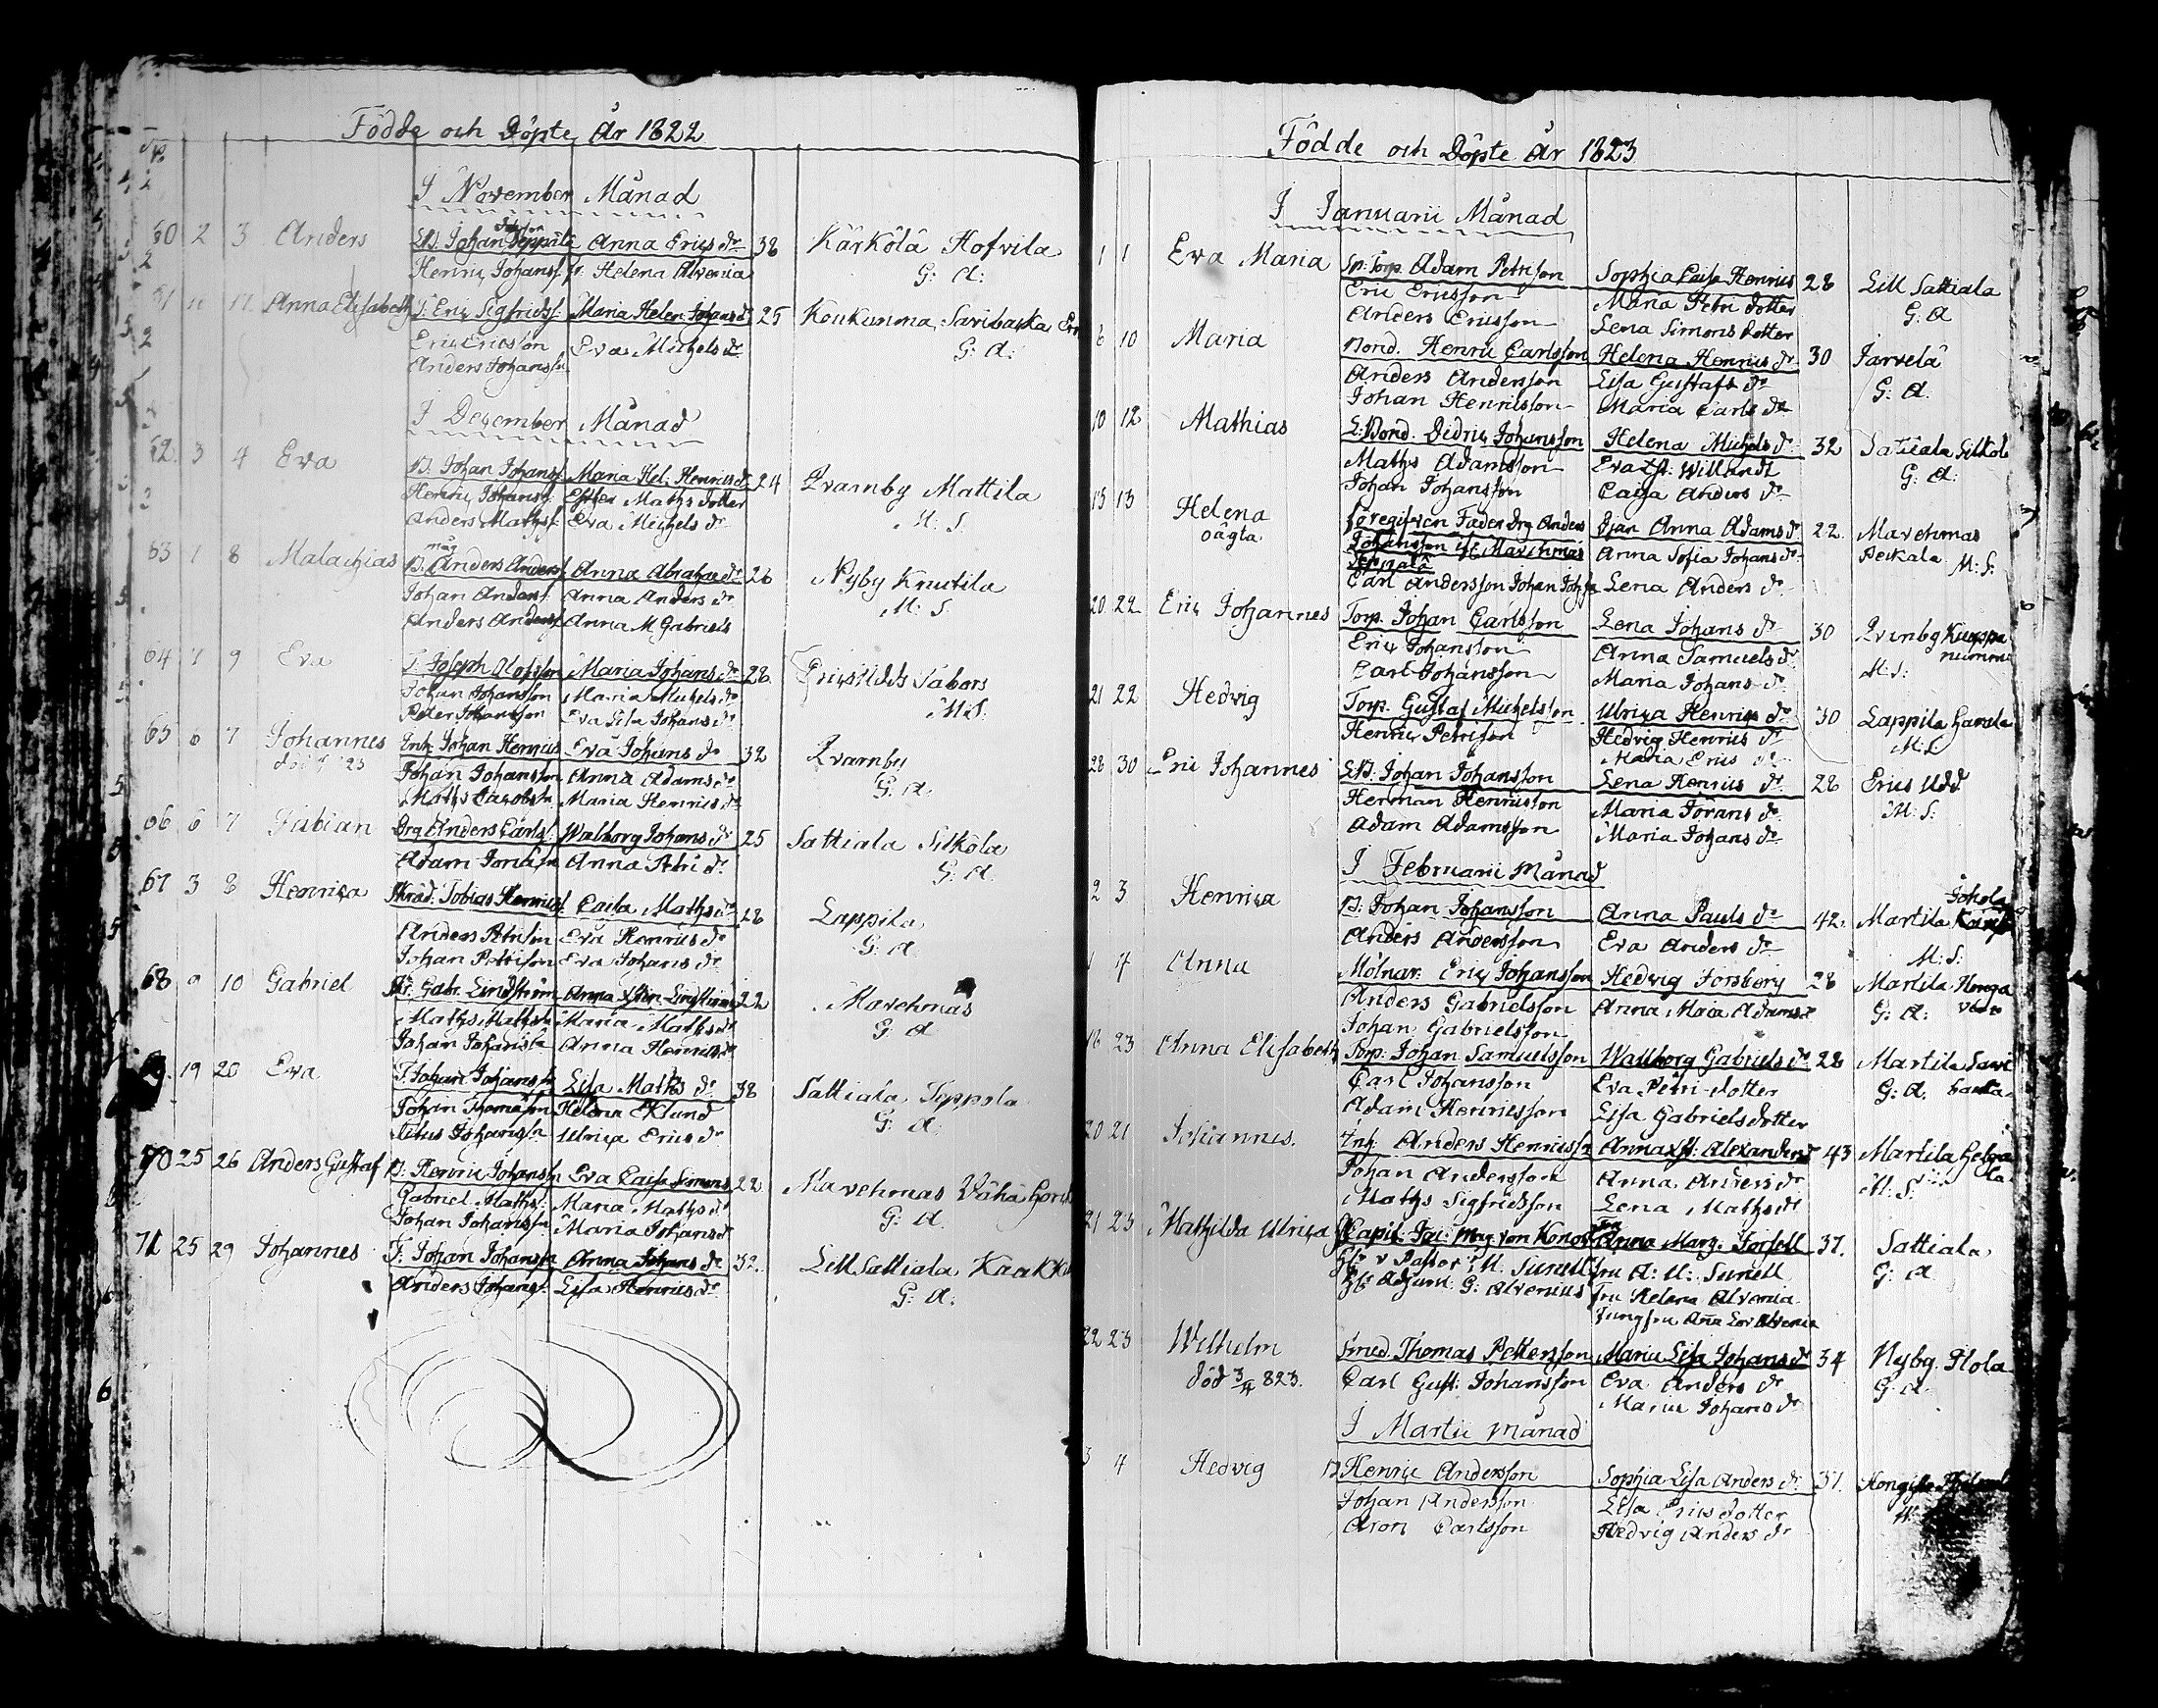 Födde och Döpte År 1822
No
I November Månad
60 2 3 Anders B. Johan Seppälä Anna Erics dr 38 Kärkölä Hofvila
Henric Johanss. Helena Alvenia G: A:
61 11 Anna Elisabeth T. Eric Sigfridss. Maria Helen Johans dr 25 Koukunma
Eric Ericsson Eva Michels dr G: A:
Anders Johanss.
I December Månad
62. 3 4 Eva B. Johan Johanss. Maria Hel. Henrics dr 24 Qvarnby Mattila
Henric Johanss. Esther Maths dotter M: S.
Anders Mathss. Eva Michels dr
63 1 8 Malachias B. Anders Anderss. Anna Abrahas dr 26 Nyby Knutila
Johan Anderss. Anna Anders dr M: S.
Anders Anderss. Anna M Gabriels
64 7 9 Eva T. Joseph Olofsson Maria Johans dr 28. Erics Udds Tabors
Johan Johansson Maria Michels dr M: S:
Peter Johansson Eva Lisa Johans dr
65 6 7 Johannes Inh. Johan Henrics Eva Johans dr 32 Qvarnby
Johan Johansson Anna Adams dr G: A.
Maths Jacobsn Maria Henrics dr
66 6 7 Fabian Drg Anders Carls. Walborg Johans dr 25 Sattiala Silkola
Adam Jonasn Anna Petri dr G: A.
67 3 8 Henrica Skräd. Tobias Henrics. Caisa Maths dr 28 Lappila
Anders Petrisn Eva Henrics dr G: A.
Johan Pettison Eva Johans dr
68 9 10 Gabriel Gabr. Lindström Anna Xstin Lindströms 22 Marehmas
Maths Mathsn Maria Maths dr G: A.
Johan Johansn Anna Henrics dr
19 20 Eva T. Johan Johanssn Lisa Maths dr 38 Sattiala Seppola
Johan Thomasson Helena Eklund G: A.
Titus Johanssn Ulrica Erics dr
70 25 26 Anders Gustaf B. Henric Johanssn Eva Caisa Simons 22 Marehmas Vähä
Gabriel Mathss. Maria Maths dr G: A.
Johan Johanssn Maria Johans dr
71 25 29 Johannes T. Johan Johanssn Anna Johans dr 32. Lill Sattiala
Anders Johanss. Lisa Henrics dr G: A.
Födde och Döpte År 1823
I Januarii Månad
1 1 Eva Maria Sp: Torp. Adam Petrison Sophia Caisa Henrics 28 Lill Sattiala
Eric Ericsson Maria Petri dotter G: A
Anders Ericsson Lena Simons dotter
6 10 Maria Bond. Henric Carlsson Helena Henrics dr 30 Järvelä
Anders Andersson Lisa Gustafs dr G: A.
Johan Henricsson Maria Carls dr
10 12 Mathias L: Bond. Didric Johansson Helena Michels dr 32 Satiala Silkol
Maths Adamsson Eva Xst: Willandt G: A:
Johan Johansson Caisa Anders dr
15 13 Helena Föregifven Fader Drg Anders Pijan Anna Adams dr 22. Marehmas
oägta Johansson Marehmas Anna Sofia Johans dr Peckala M: S:
Seppälä
Carl Andersson Johan Lena Anders dr
20 22 Eric Johannes Torp. Johan Carlsson Lena Johans dr 30 Kuoppa
Eric Johansson Anna Samuels dr nummi
Carl Johansson Maria Johans dr M: S:
21 22 Hedvig Torp. Gustaf Michelsson Ulrica Henrics dr 30 Lappila
Henric Petrison Hedvig Henrics dr M: S.
Maria Erics dr
28 30 Eric Johannes LB. Johan Johansson Lena Henrics dr 28 Erics Udd
Herman Henricson Maria Görans dr M: S:
Adam Adamsson Maria Johans dr
I Februarii Månad
2 3 Henrica B. Johan Johansson Anna Pauls dr 42. Martila
Anders Andersson Eva Anders dr M: S:
4 Anna Mölnar. Eric Johansson Hedvig Forsberg 28 Martila
Anders Gabrielsson Anna Maia Adams dr G: A:
Johan Gabrielsson
16 23 Anna Elisabeth Torp. Johan Samuelsson Wallborg Gabriels dr 28 Martila
Carl Johansson Eva Petri dotter G: A.
Adam Henricsson Lisa Gabriels dotter
20 21 Johannes. Inh. Anders Henricssn Anna Xst: Alexanders 43 Martila
Johan Andersson Anna Anders dr M: S.
Maths Sigfridsson Lena Maths dr
21 23 Mathilda Ulrica Capit. Jac: Mag. von Konow Anna Marg. Forsell 37. Sattiala
v Pastor M. Sunell Fru A: U: Sunell G: A.
Adjunt. G: Alvenius Fru Helena Alvenia
Jungfru Anna Lov Alvenia
22 23 Wilhelm Smed. Thomas Pettersson Maria Lisa Johans dr 34 Nyby. Flola
död 3/4 823. Carl Gust: Johansson Eva Anders dr G: A.
Maria Johans dr
I Martii Månad
3 4 Hedvig B Henric Andersson Sophia Lisa Anders dr 37.
Johan Andersson Lisa Erics dotter
Aron Carlsson Hedvig Anders dr